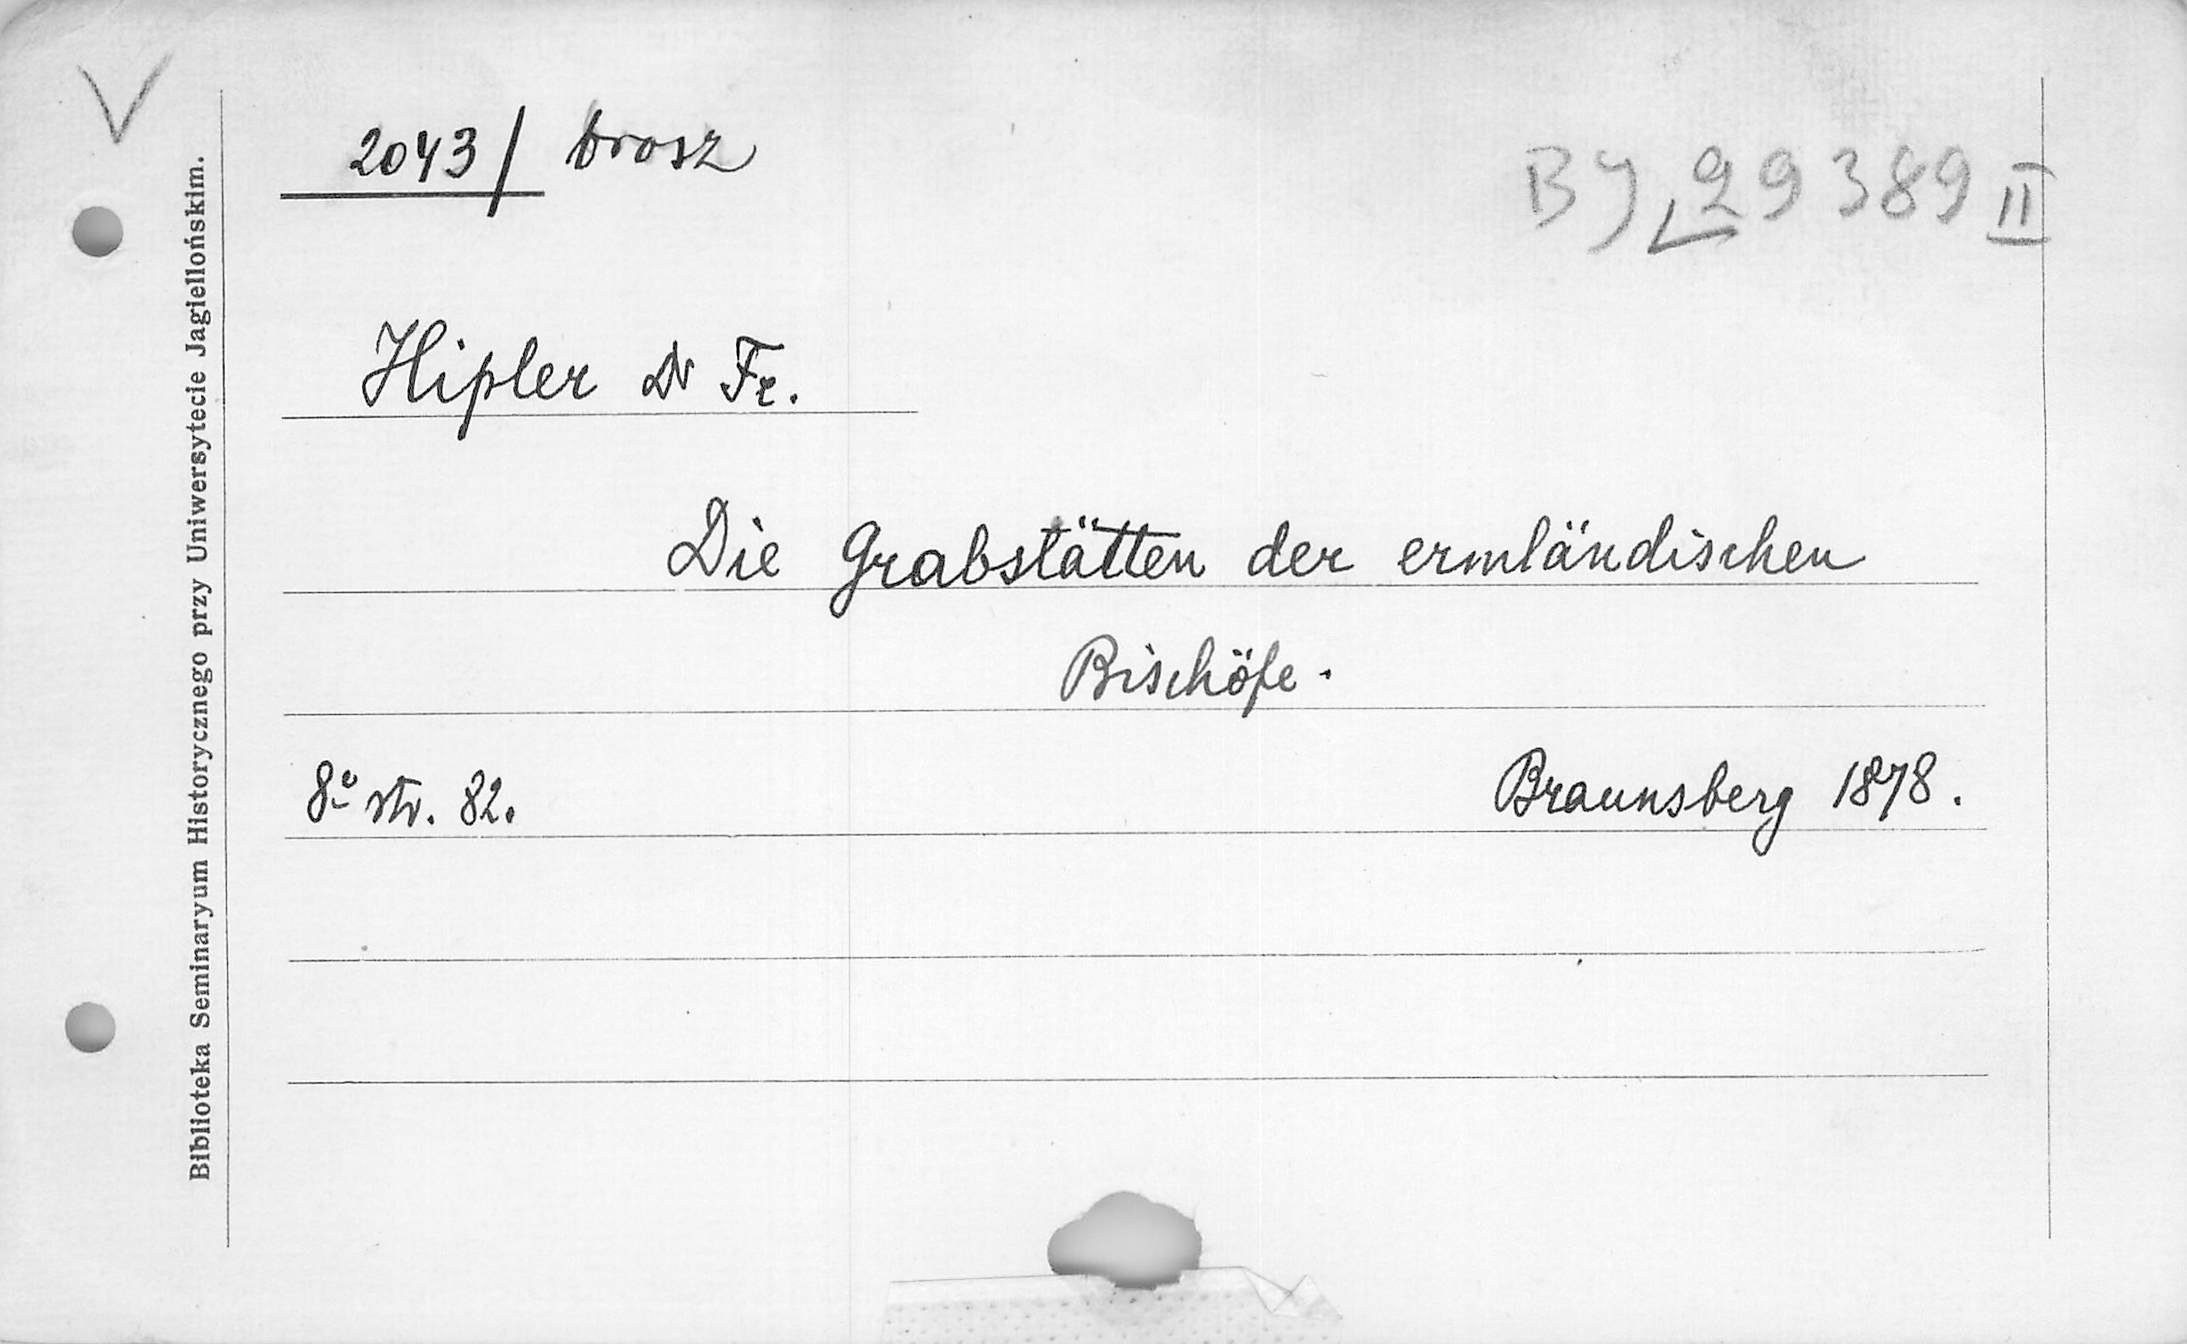 2043/ brosz
BJ 29389 II
Hipler Dr Fr.
Die Grabstätten der ermländischen
Bischöfe.
8º str. 82.
Braunsberg 1878.
Biblioteka Seminaryum Historycznego przy Uniwersytecie Jagiellońskim.